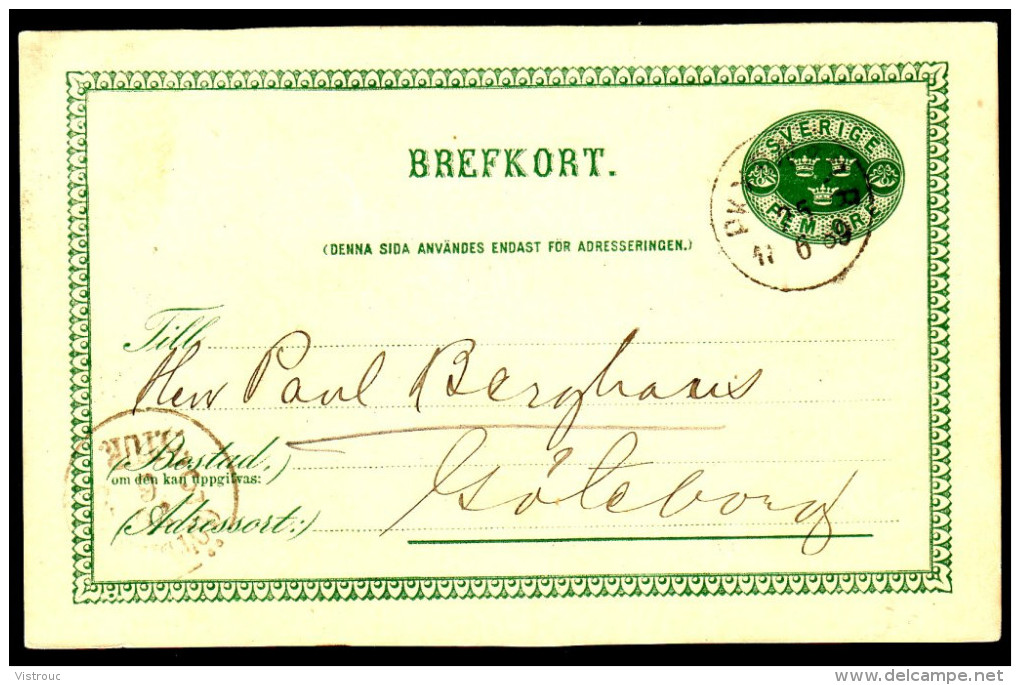 SVERIGE
FEM ÖRE
BREFKORT.
(DENNA SIDA ANVÄNDES ENDAST FÖR ADRESSERINGEN.)
Till
Herr Paul Berghaus
(Bostad,)
om den kan uppgifvas:
Göteborg
(Adressort:)
Vistrouc
delcampe.net